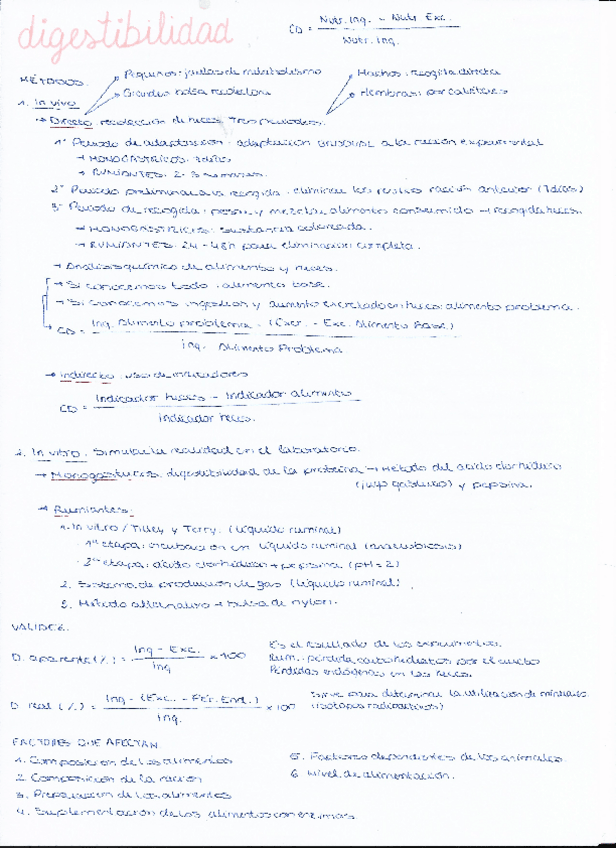 digestibilidad
CD = Nutr. Ing. - Nutr Exc. / Nutr. Ing.
MÉTODOS.
Pequeños: jaulas de metabolismo
Grandes: bolsa recolectora
Machos: recogida directa
Hembras: por catéteres
1. In vivo
→ Directo: recolección de heces. Tres periodos:
1º Periodo de adaptación: adaptación gradual a la ración experimental
→ MONOGÁSTRICOS: 7 días
→ RUMIANTES: 2-3 semanas.
2º Periodo preliminar a la recogida: eliminar los restos ración anterior (7 días)
3º Periodo de recogida: pesar y mezclar alimento consumido → recogida heces.
→ MONOGÁSTRICOS: sustancia coloreada.
→ RUMIANTES: 24-48h para eliminación completa.
→ Análisis químico de alimentos y heces.
→ Si conocemos todo: alimento base.
→ Si conocemos ingestión y alimento excretado en heces: alimento problema.
CD = Ing. Alimento problema - (Excr. - Exc. Alimento Base.) / Ing. Alimento Problema
→ Indirecto: uso de indicadores
CD = Indicador heces - Indicador alimento / Indicador heces.
2. In vitro. Simular la realidad en el laboratorio.
→ Monogástricos: digestibilidad de la proteína → Método del ácido clorhídrico
(jugo gástrico) y pepsina.
→ Rumiantes:
1. In vitro / Tilley y Terry. (líquido ruminal)
1ª etapa: incubación en líquido ruminal (anaerobiosis)
2ª etapa: ácido clorhídrico + pepsina (pH = 2)
2. Sistema de producción de gas (líquido ruminal).
3. Método alternativo → bolsa de nylon.
VALIDEZ.
D. aparente (%) = Ing - Exc. / Ing × 100
Es el resultado de los experimentos.
Rum. pérdida carbohidratos por el eructo
Pérdidas endógenas en las heces.
D. real (%) = Ing - (Exc. - Fér. End.) / Ing. × 100
Sirve para determinar la utilización de minerales
(isótopos radiactivos)
FACTORES QUE AFECTAN
1. Composición de los alimentos
2. Composición de la ración
3. Preparación de los alimentos
4. Suplementación de los alimentos con enzimas
5. Factores dependientes de los animales
6. Nivel de alimentación.